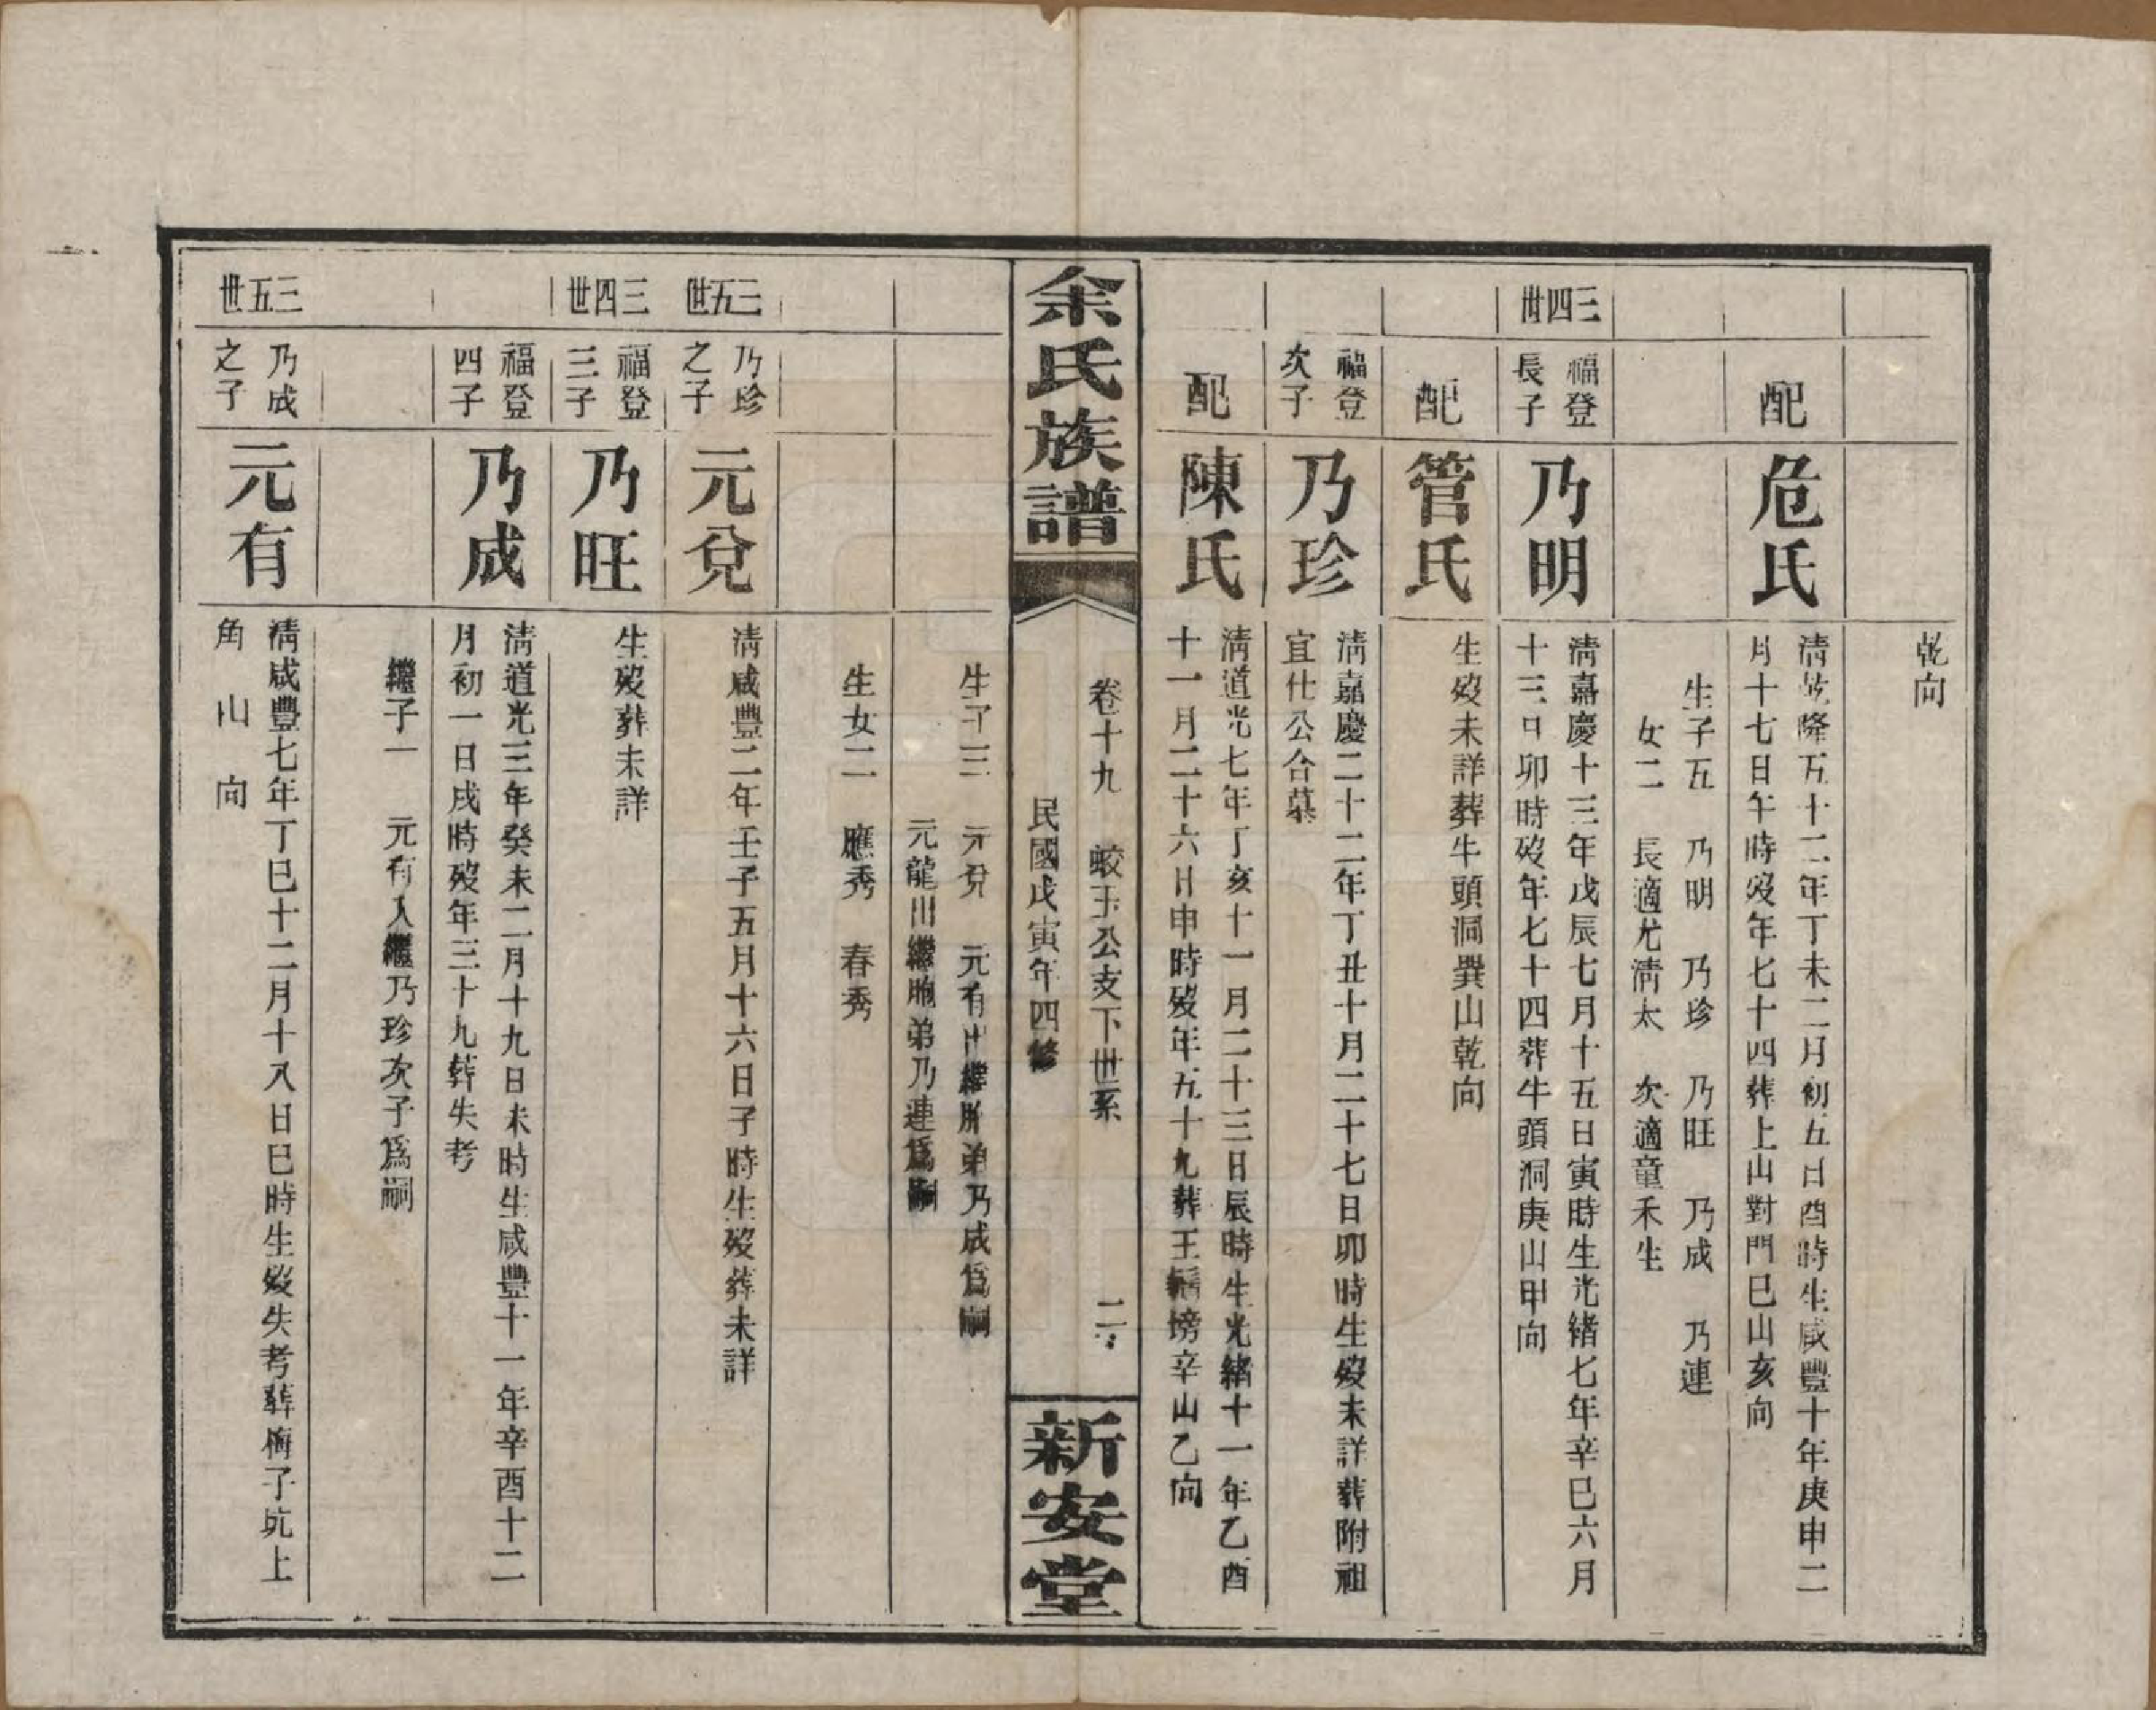 乾向
配
危氏
清乾隆五十二年丁未二月初五日酉時生咸豐十年庚申二
月十七日午時歿年七十四葬上山對門巳山亥向
生子五 乃明 乃珍 乃旺 乃成 乃連
女二 長適尤清太 次適童禾生
三四世
福登
長子
乃明
清嘉慶十三年戊辰七月十五日寅時生光緒七年辛巳六月
十三日卯時歿年七十四葬牛頭洞庚山甲向
配
管氏
生歿未詳葬牛頭洞巽山乾向
福登
次子
乃珍
清嘉慶二十二年丁丑十月二十七日卯時生歿未詳葬附祖
宜仕公合墓
配
陳氏
清道光七年丁亥十一月二十三日辰時生光緒十一年乙酉
十一月二十六日申時歿年五十九葬王塝辛山乙向
余氏族譜
卷十九 蛟玉公支下世系 二
民國戊寅年四修
新安堂
生子三 元兌 元有出繼胞弟乃成爲嗣
元龍出繼胞弟乃連爲嗣
生女二 應秀 春秀
三五世
乃珍
之子
元兌
清咸豐二年壬子五月十六日子時生歿葬未詳
三四世
福登
三子
乃旺
生歿葬未詳
福登
四子
乃成
清道光三年癸未二月十九日未時生咸豐十一年辛酉十二
月初一日戌時歿年三十九葬失考
繼子一 元有入繼乃珍次子爲嗣
三五世
乃成
之子
元有
清咸豐七年丁巳十二月十八日巳時生歿失考葬梅子坑上
角山向